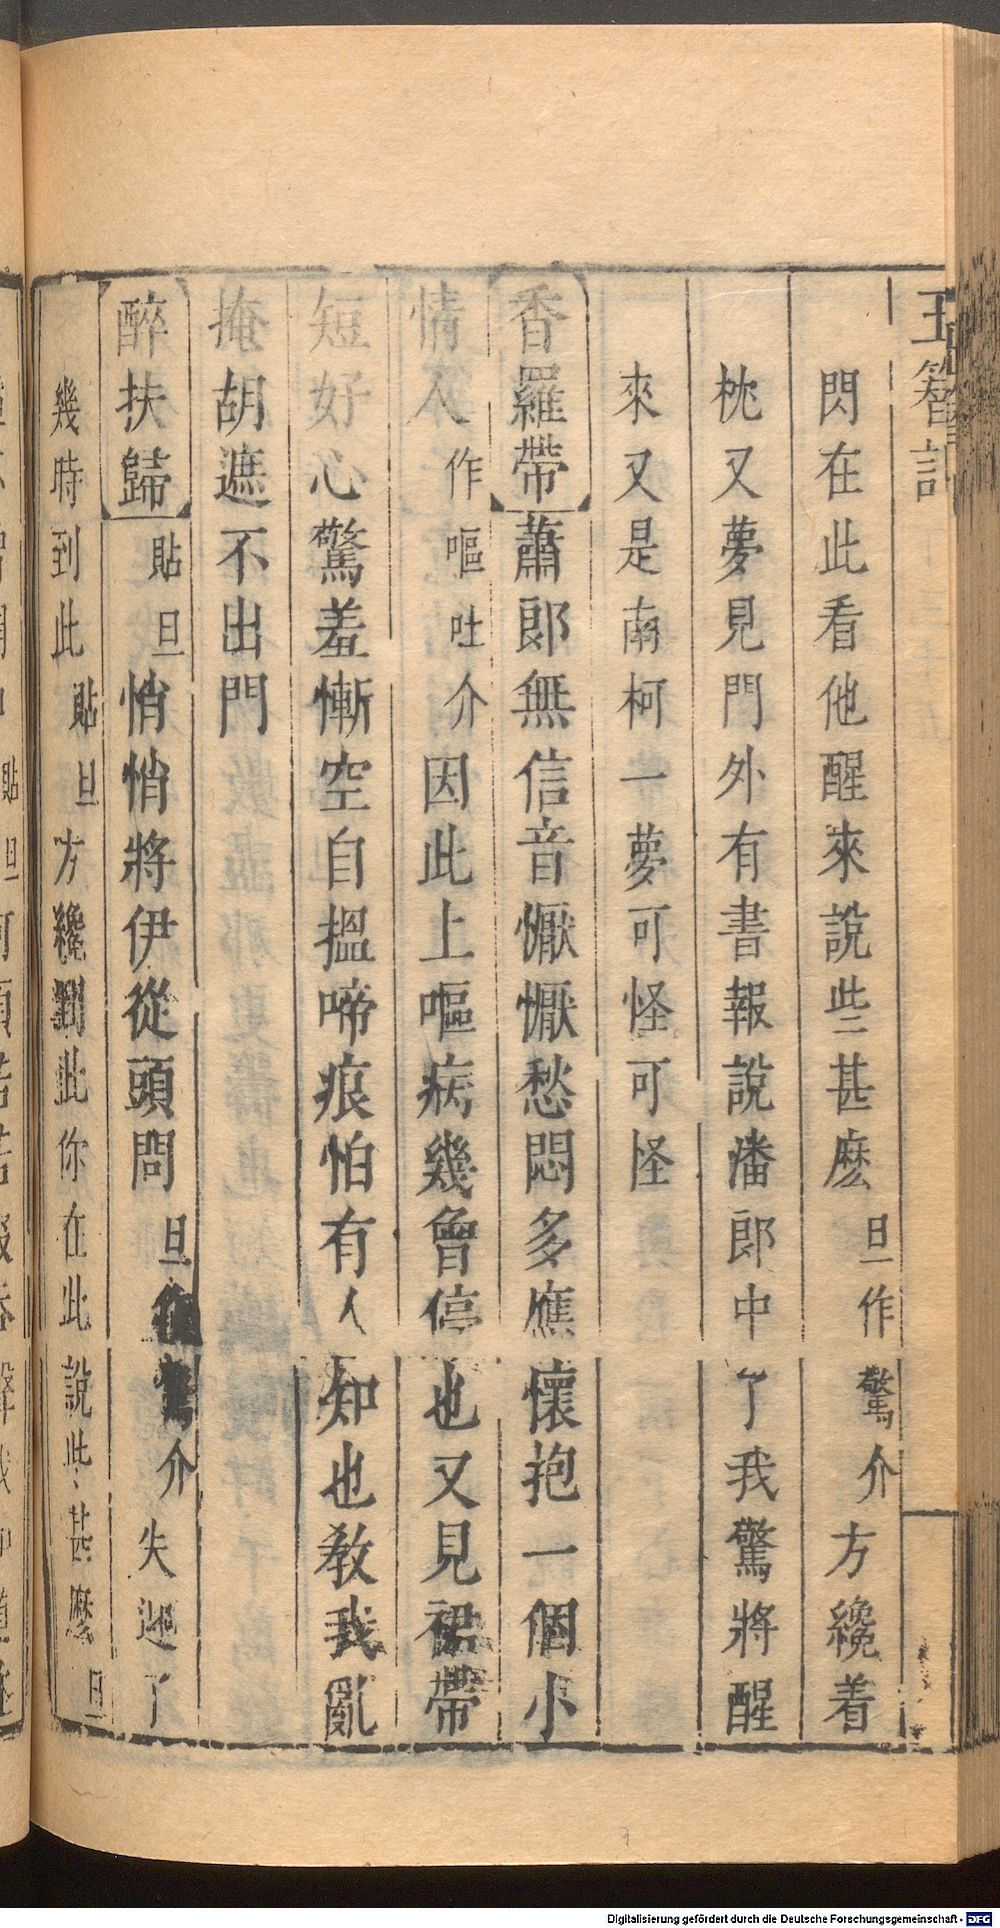 玉簪記
閃在此看他醒來說些甚麽旦作驚介方纔着
枕又夢見門外有書報說潘郎中了我驚將醒
來又是南柯一夢可怪可怪
香羅帶蕭郎無信音懨懨愁悶多應懷抱一個小
情人作嘔吐介因此上嘔病幾曾停也又見裙帶
短好心驚羞慚空自搵啼痕怕有人知也教我亂
掩胡遮不出門
醉扶歸貼旦悄悄將伊從頭問旦作驚介失迎了
幾時到此貼旦方纔到此你在此說些甚麽旦
Digitalisierung gefördert durch die Deutsche Forschungsgemeinschaft - DFG